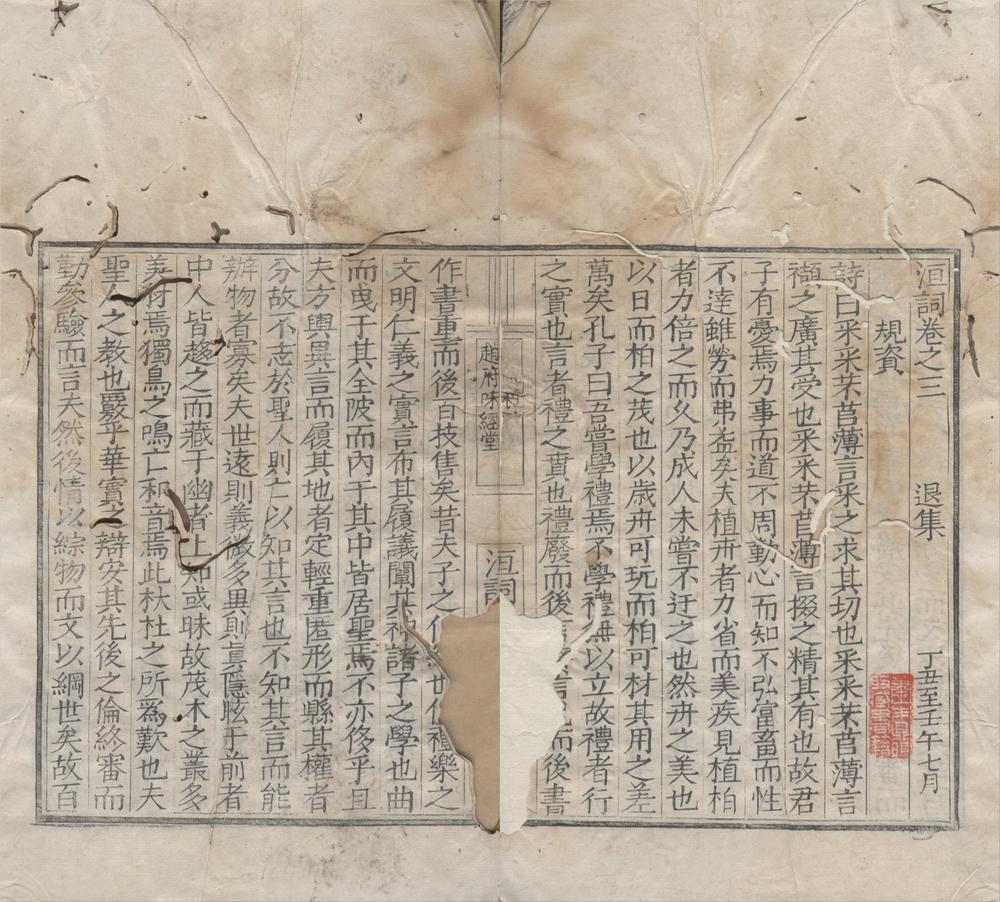 洹詞卷之三 退集 丁丑至壬午七月
規資
詩曰采采芣苢薄言采之求其切也采采芣苢薄言
襭之廣其受也采采芣苢薄言掇之精其有也故君
子有憂焉力事而道不周動心而知不弘富畜而性
不達雖勞而弗益矣夫植卉者力省而美疾見植柏
者力倍之而久乃成人未嘗不迂之也然卉之美也
以日而柏之茂也以歲卉可玩而柏可材其用之差
萬矣孔子曰吾嘗學禮焉不學禮無以立故禮者行
之實也言者禮之賁也禮廢而後言而後書
趙府味經堂
洹詞
作書重而後百技售矣昔夫子之作也禮樂之
文明仁義之實言布其履議闡其神諸子之學也曲
而曳于其全陂而內于其中皆居聖焉不亦侈乎且
夫方輿異言而履其地者定輕重匿形而縣其權者
分故不志於聖人則亡以知其言也不知其言而能
辦物者寡矣夫世遠則義微多異則真隱眩于前者
中人皆趨之而藏于幽者上知或昧故茂木之叢多
美材焉獨鳥之鳴亡和音焉此杕杜之所爲歎也夫
聖人之教也覈乎華實之辯安其先後之倫終審而
勤參驗而言夫然後情以綜物而文以綱世矣故百